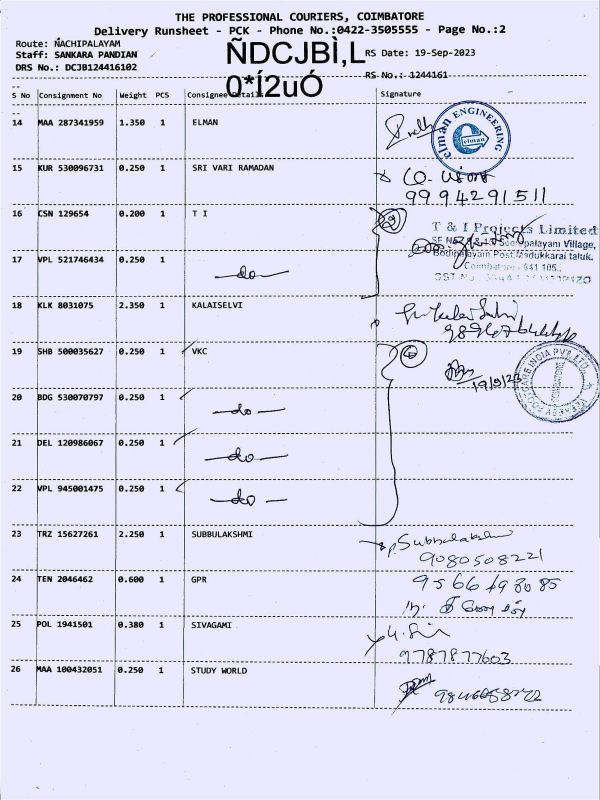 THE PROFESSIONAL COURIERS, COIMBATORE
Delivery Runsheet - PCK - Phone No.:0422-3505555 - Page No.:2
Route: NACHIPALAYAM
Staff: SANKARA PANDIAN
DRS No.: DCJB124416102
ÑDCJBÌ,L
0*Í2uÓ
RS Date: 19-Sep-2023
RS No.: 1244161
S No Consignment No Weight PCS Consignee Details Signature
14 MAA 287341959 1.350 1 ELMAN
elman ENGINEERING
elman
15 KUR 530096731 0.250 1 SRI VARI RAMADAN
9994291511
16 CSN 129654 0.200 1 T I
T & I Projects Limited
Village,
Bodipalayam Post, Madukkarai taluk,
Coimbatore - 641 105.
17 VPL 521746434 0.250 1
-do-
18 KLK 8031075 2.350 1 KALAISELVI
19 SHB 500035627 0.250 1 VKC
19/9/23
20 BDG 530070797 0.250 1
-do-
21 DEL 120986067 0.250 1
-do-
22 VPL 945001475 0.250 1
-do-
23 TRZ 15627261 2.250 1 SUBBULAKSHMI
P. Subbulakshmi
9080508221
24 TEN 2046462 0.600 1 GPR
9566498085
25 POL 1941501 0.380 1 SIVAGAMI
9787877603
26 MAA 100432051 0.250 1 STUDY WORLD